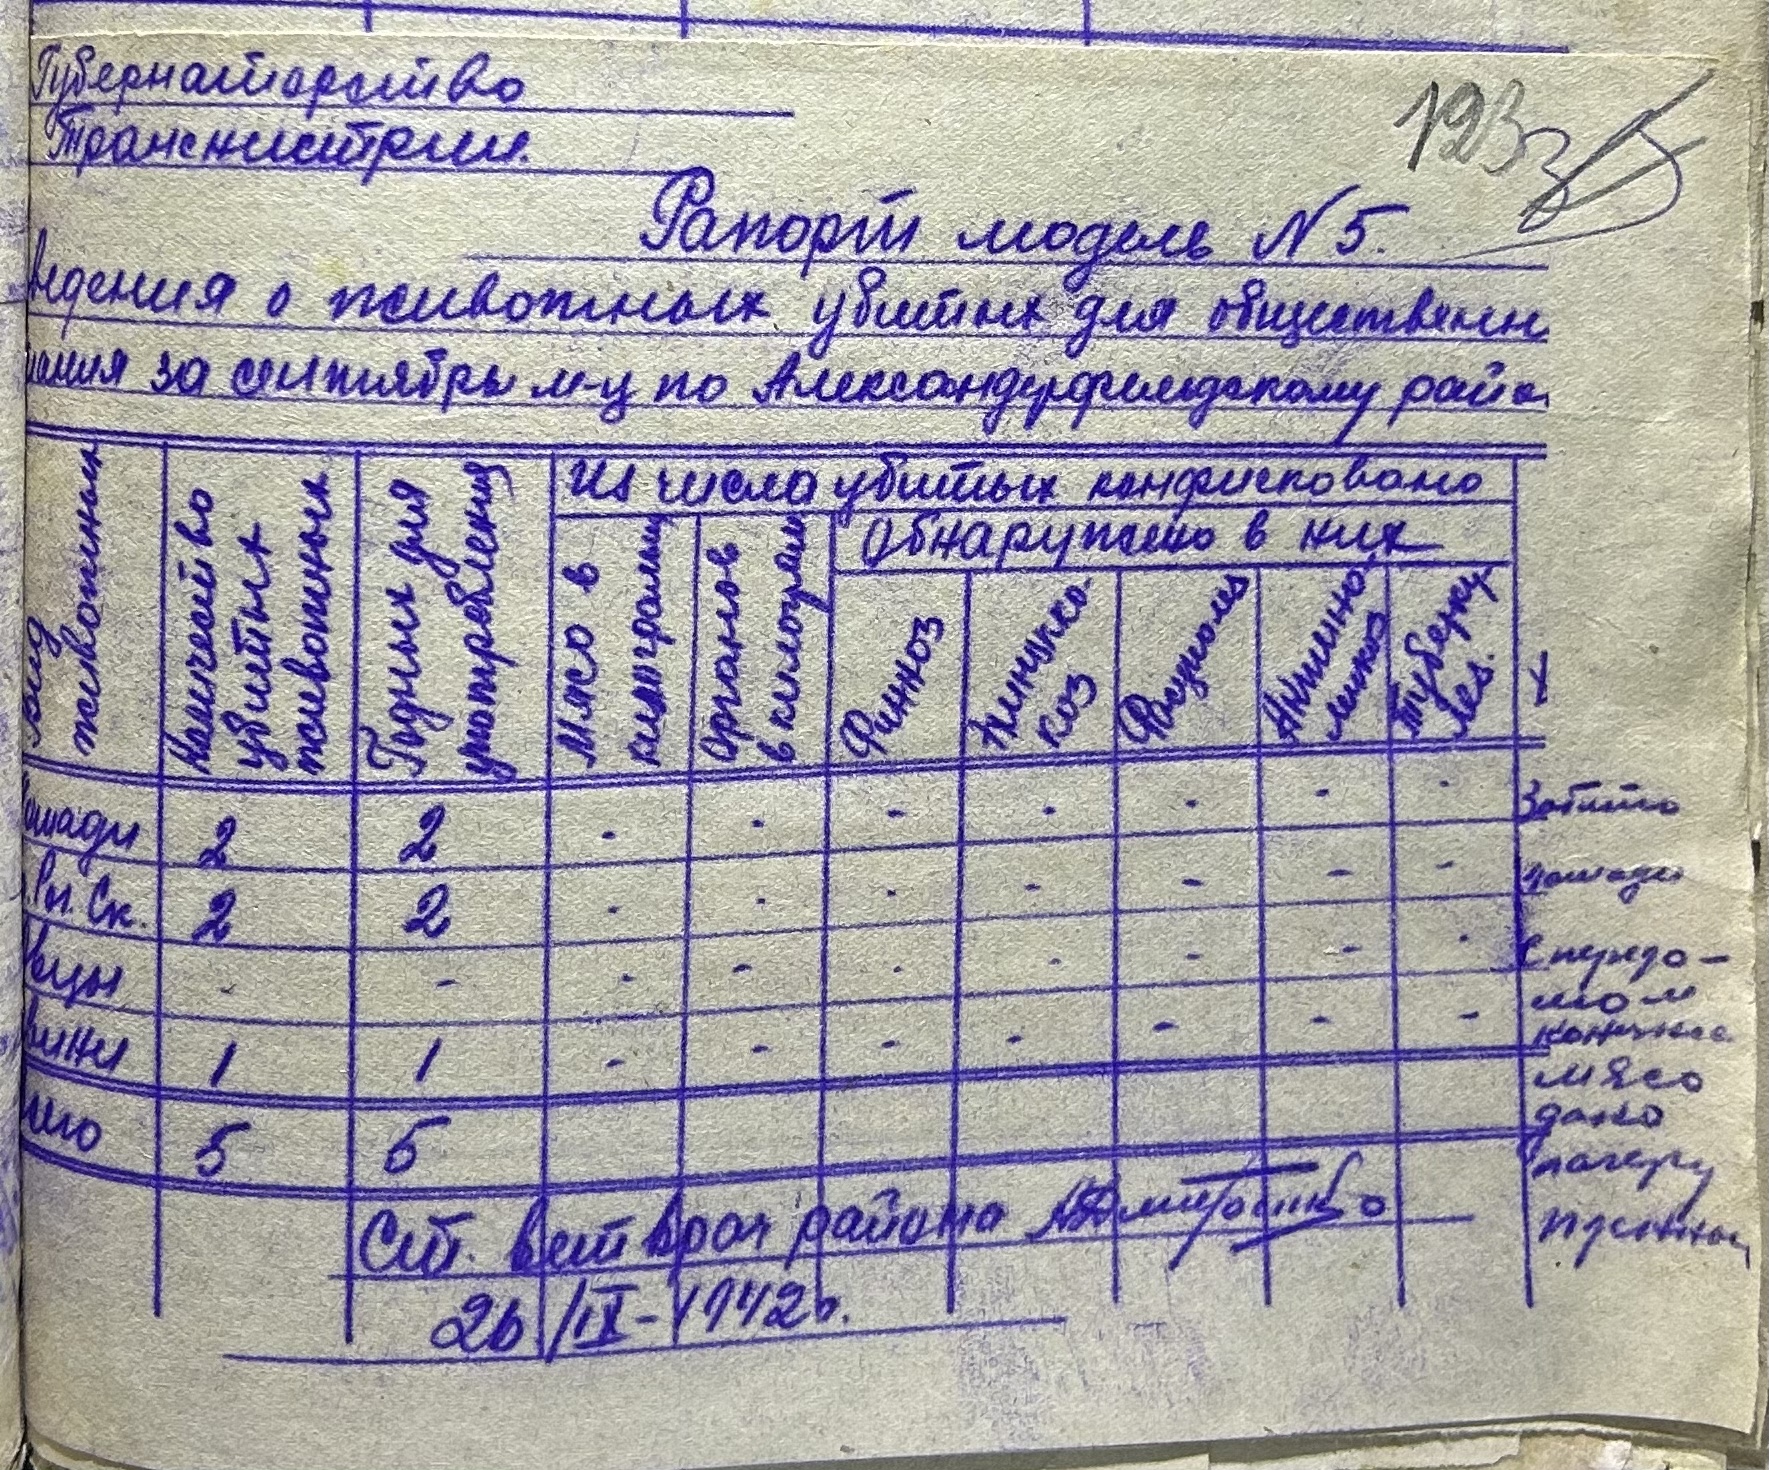 Губернаторство
Транснистрии.
123
Рапорт модель N 5.
ведения о животных убитых для общественн
тания за сентябрь м-ц по Александерфельдскому райо
Вид животных
Количество убитых животных
Годных для употребления
Из числа убитых конфисковано
Мясо в килограмм
Органов в килограм
Обнаружено в них
Финноз
Эхинококкоз
Фасциолез
Актиномикоз
Туберкулез.
ошади 2 2 - - - - - - -
Рог. Ск. 2 2 - - - - - - -
вцы - - - - - - - - -
виньи 1 1 - - - - - - -
его 5 5
Забито
лошади
с перело-
мом
конечнос.
мясо
дано
лагерю
пленных
Ст. вет врач района
26/IX-1942г.